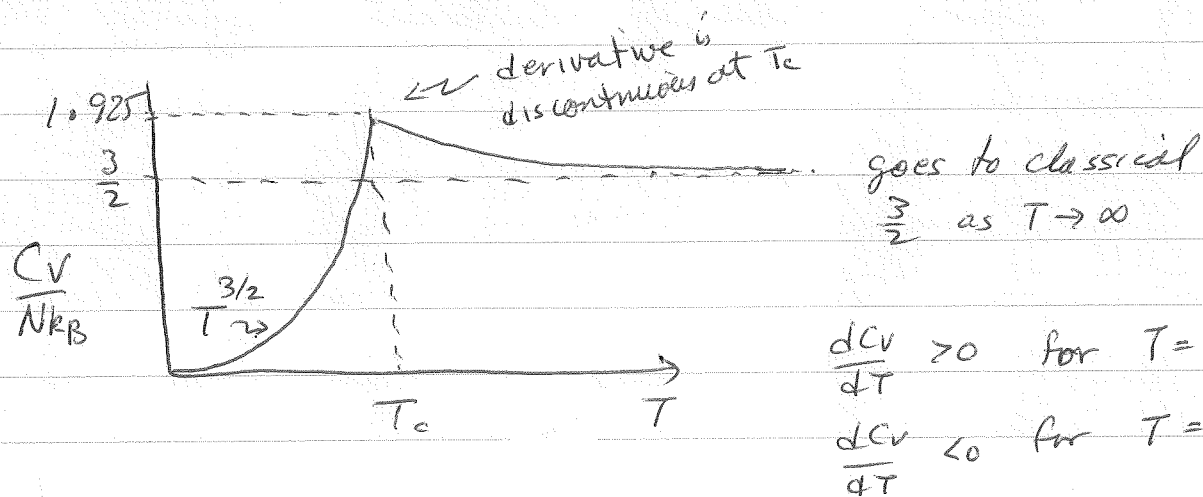 derivative is
discontinuous at Tc
1.925
3/2
goes to classical
3/2 as T → ∞
CV/NkB
T^3/2
dCv/dT >0 for T=
dCv/dT <0 for T=
Tc T